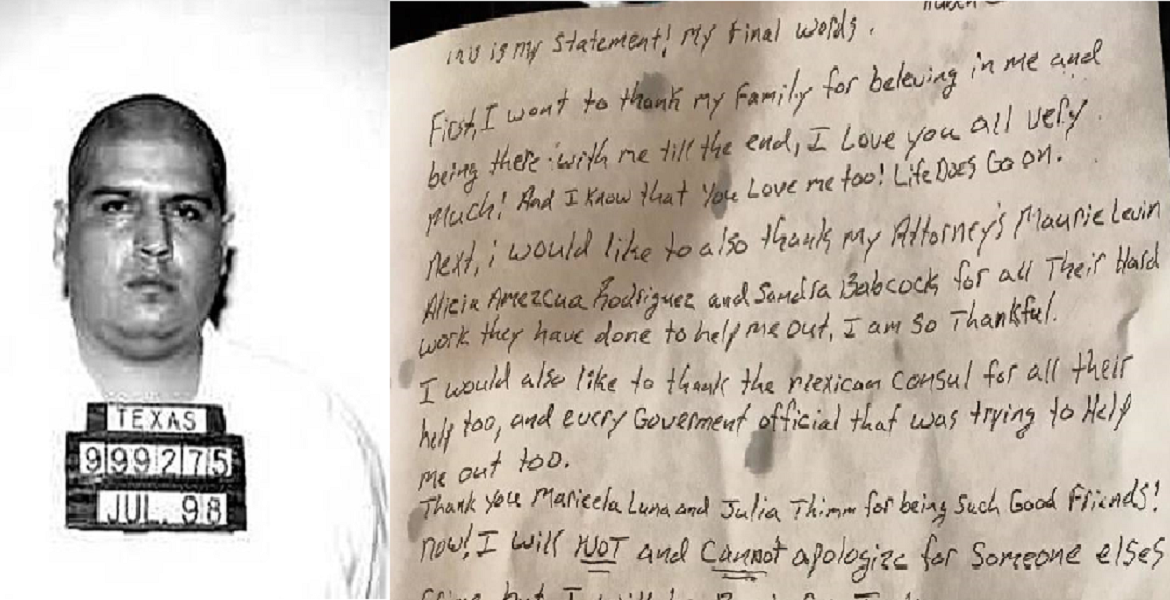 TEXAS
999275
JUL. 98
much
This is my Statement! My Final words.
First, I want to thank my Family for beleving in me and
being there with me till the end, I Love you all very
Much! And I Know that You Love me too! Life Does Go on.
Next, i would like to also thank my Attorney's Maurie Levin
Alicia Amezcua Rodriguez and Sandra Babcock for all Their Hard
work they have done to help me out, I am so Thankful.
I would also like to thank the mexican consul for all their
help too, and every Goverment official that was trying to Help
me out too.
Thank you Marieela Luna and Julia Thimm for being Such Good Friends!
now! I will NOT and Cannot apologize for Someone elses
but I will